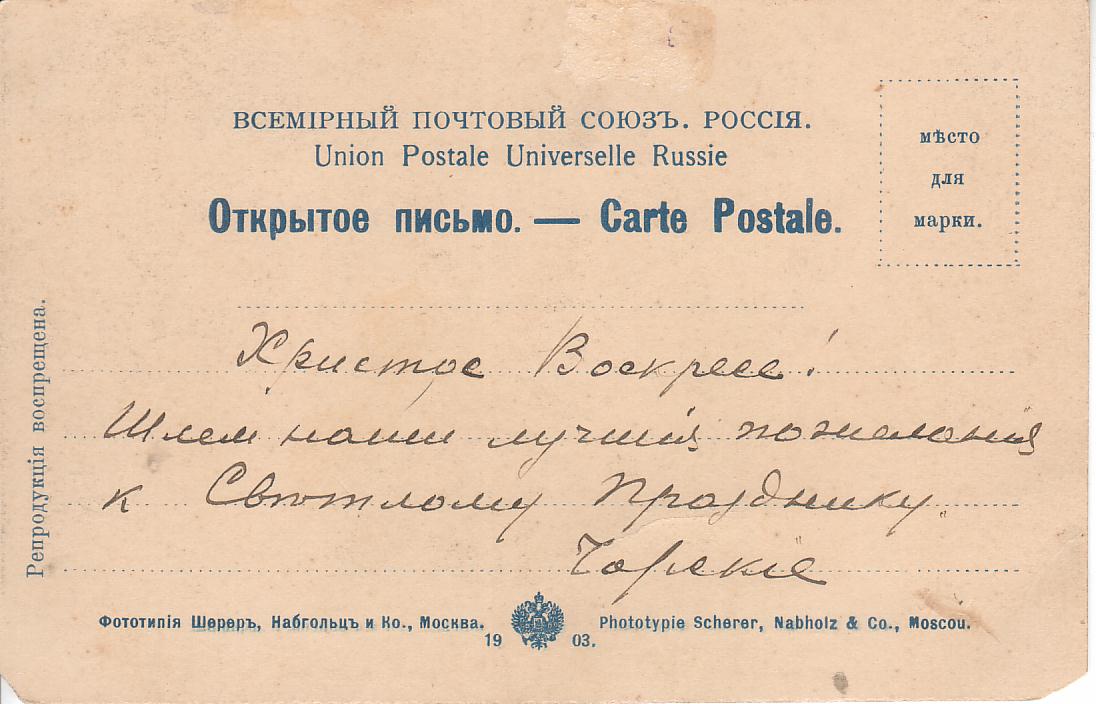 ВСЕМІРНЫЙ ПОЧТОВЫЙ СОЮЗЪ. РОССІЯ.
Union Postale Universelle Russie
Открытое письмо. — Carte Postale.
мѣсто
для
марки.
Репродукція воспрещена.
Христос Воскресе!
Шлем наши лучшія пожеланія
к Свѣтлому Празднику.
Фототипія Шереръ, Набгольцъ и Ко., Москва.
Phototypie Scherer, Nabholz & Co., Moscou.
1903.